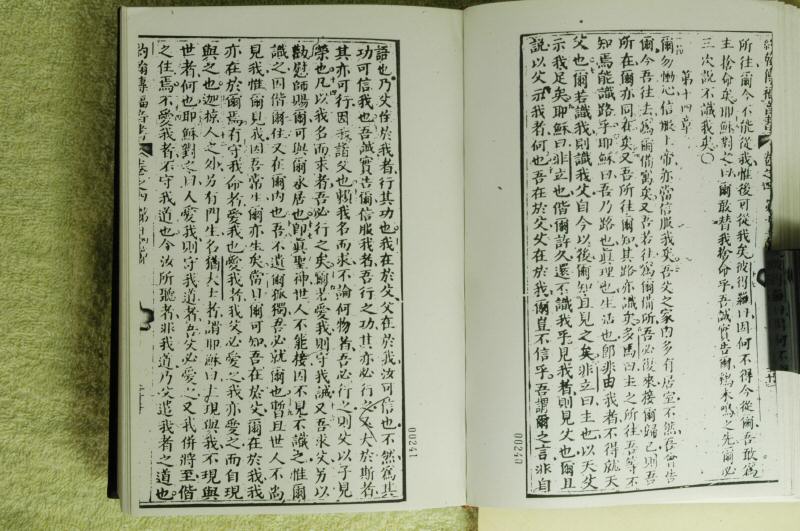 所往爾今不能從我惟後可從我矣彼得羅曰因何不得今從爾吾敢爲
主捨命矣耶穌對之曰爾敢替我捨命乎吾誠實告爾鷄未鳴之先爾必
三次說不識我矣○
第十四章
爾勿慟心信服上帝亦當信服我矣吾父之家內多有居室不然吾曾告
爾今吾往去爲爾備寓矣又吾若往爲爾備所吾必復來接爾歸己則吾
所在爾亦同在矣又吾所往爾知其路亦識矣多馬曰主之所往吾等不
知焉能識路乎耶穌曰吾乃路也眞理也生活也卽非由我者不得就天
父也爾若識我則識我父自今以後爾知且見之矣非立曰主也以天父
示我足矣耶穌曰非立也偕爾許久還不識我乎見我者則見父也爾且
說以父示我者何也吾在於父父在於我爾豈不信乎吾謂爾之言非自
00240
語也乃父住於我者行其功也我在於父父在於我汝可信也不然爲其
功可信我也吾誠實告爾信服我者吾行之功其亦必行之又大於斯者
其亦可行因我詣父也賴我名而求不論何物吾必行之則父以子見
榮也凡以我名而求者吾必行之矣爾若愛我則守我誡又吾求父另以
慰師賜爾可與爾永居也卽眞聖神世人不能接因不見不識之惟爾
識之因偕爾住又在爾內也吾不遺爾孤獨吾必就爾也暫且世人不尚
見我惟爾見我因吾常生爾亦生矣當日爾可知吾在於父爾在於我我
亦在於爾焉有守我命者愛我也愛我者我父必愛之我亦愛之而自現
與之也迦掠人之外另有門生名猶大士者謂耶穌曰主現與我不現與
世者何也耶穌對之曰人愛我則守我道者吾父必愛之又我併將至偕
之住焉不愛我者不守我道也今汝所聽者非我道乃父遣我者之道也
約翰傳福音書 卷之四 第十四章
00241